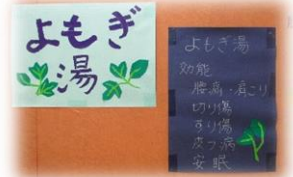 よもぎ
湯
よもぎ湯
効能
腰痛・肩こり
切り傷
すり傷
皮フ病
安眠